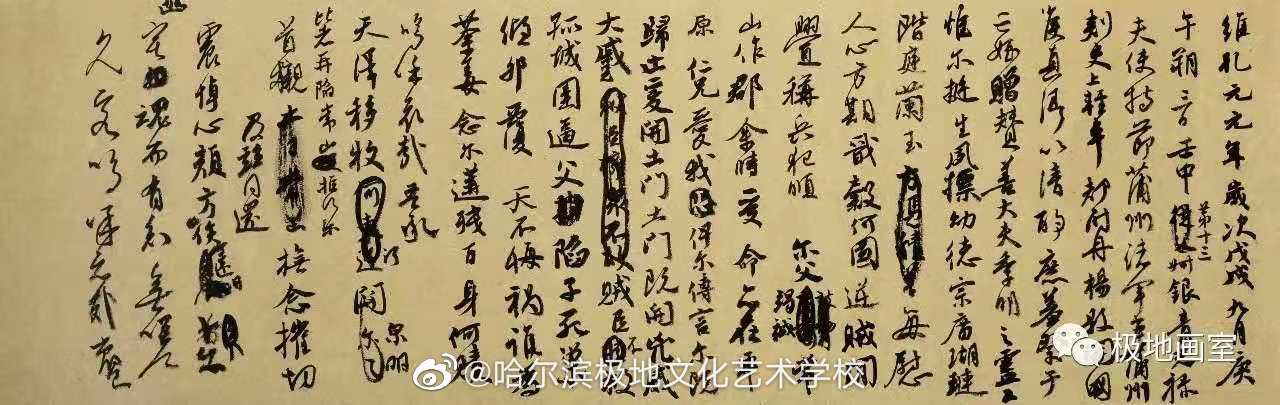 維乾元元年歲次戊戌九月庚
午朔三日壬申
第十三
銀青光祿
夫使持節蒲州諸軍事蒲州
刺史上輕車都尉丹楊縣開國
侯真卿以清酌庶羞祭于
亡姪贈贊善大夫季明之靈曰
惟爾挺生夙標幼德宗廟瑚璉
階庭蘭玉每慰
人心方期戩穀何圖逆賊間
釁稱兵犯順爾父竭誠常
山作郡余時受命亦在平
原仁兄愛我俾爾傳言爾既
歸止爰開土門土門既開兇威
大蹙賊臣不救
孤城圍逼父陷子死巢
傾卵覆天不悔禍誰為
荼毒念爾遘殘百身何贖
嗚呼哀哉吾承
天澤移牧河關
泉明
比者再陷常山攜爾
首櫬
及茲同還
撫念摧切
震悼心顏方俟遠日
卜爾
幽
宅魂而有知無嗟
久客嗚呼哀哉尚饗
@哈尔滨极地文化艺术学校
极地画室